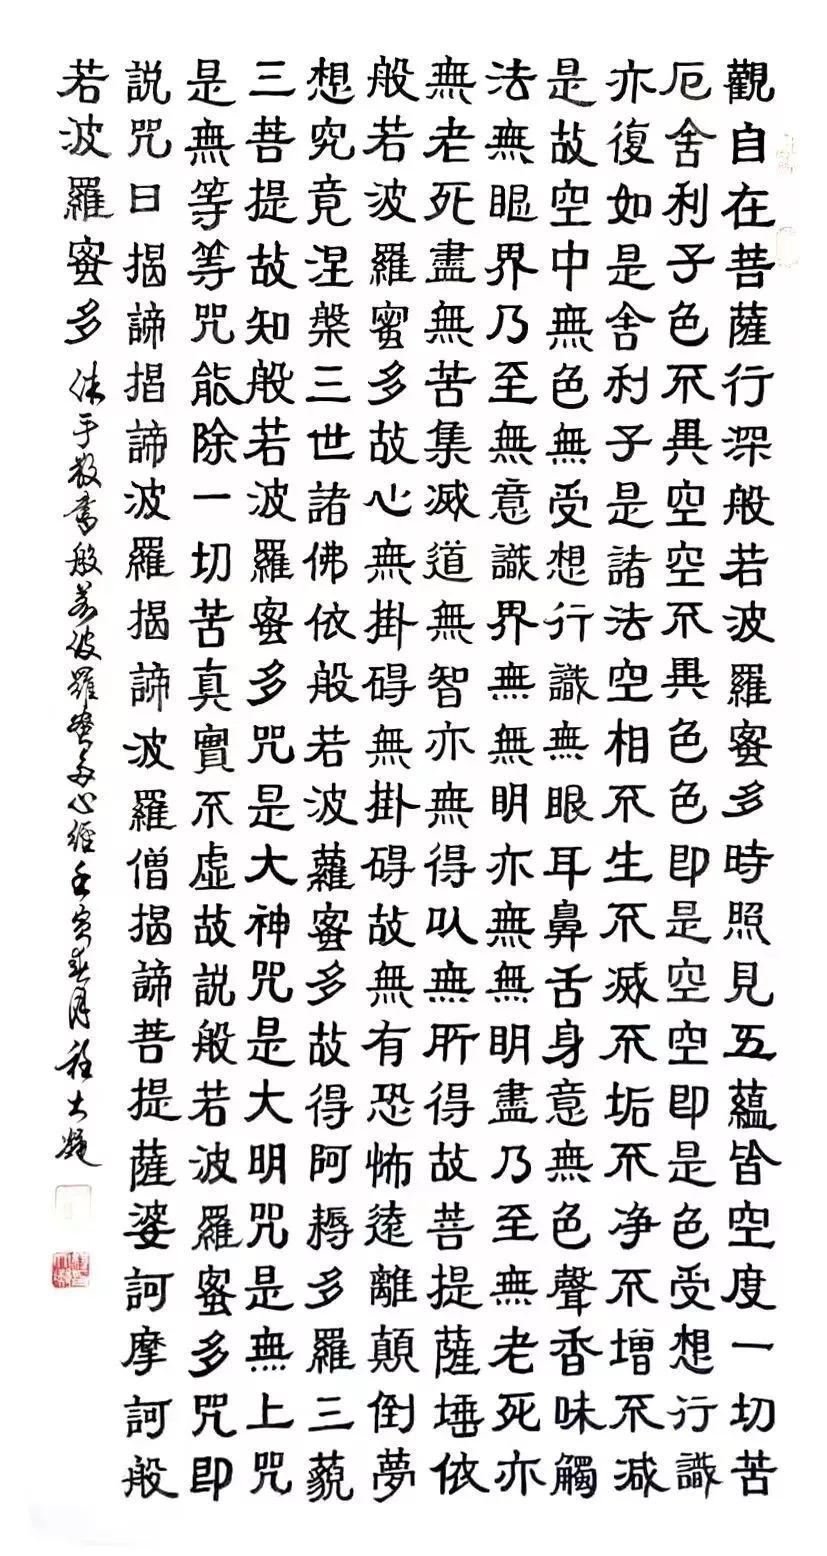 觀自在菩薩行深般若波羅蜜多時照見五蘊皆空度一切苦
厄舍利子色不異空空不異色色即是空空即是色受想行識
亦復如是舍利子是諸法空相不生不滅不垢不净不增不减
是故空中無色無受想行識無眼耳鼻舌身意無色聲香味觸
法無眼界乃至無意識界無無明亦無無明盡乃至無老死亦
無老死盡無苦集滅道無智亦無得以無所得故菩提薩埵依
般若波羅蜜多故心無掛碍無掛碍故無有恐怖遠離顛倒夢
想究竟涅槃三世諸佛依般若波蘿蜜多故得阿耨多羅三藐
三菩提故知般若波羅蜜多咒是大神咒是大明咒是無上咒
是無等等咒能除一切苦真實不虛故説般若波羅蜜多咒即
説咒曰揭諦揭諦波羅揭諦波羅僧揭諦菩提薩婆訶摩訶般
若波羅蜜多 沐手敬書般若波羅蜜多心經壬寅春月程大